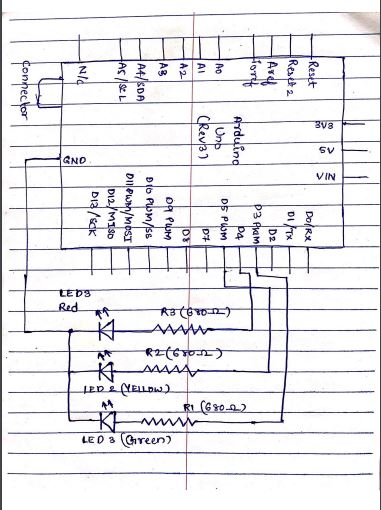 N/C
A5/SCL
A4/SDA
A3
A2
A1
A0
Ioref
Aref
Reset 2
Reset
Connector
Arduino
Uno
(Rev3)
3V3
5V
VIN
GND
D13/SCK
D12/MISO
D11 PWM/MOSI
D10 PWM/SS
D9 PWM
D8
D7
D5 PWM
D4
D3 PWM
D2
D1/Tx
D0/Rx
LED3
Red
R3 (680Ω)
R2 (680Ω)
LED 2 (YELLOW)
R1 (680Ω)
LED 3 (Green)